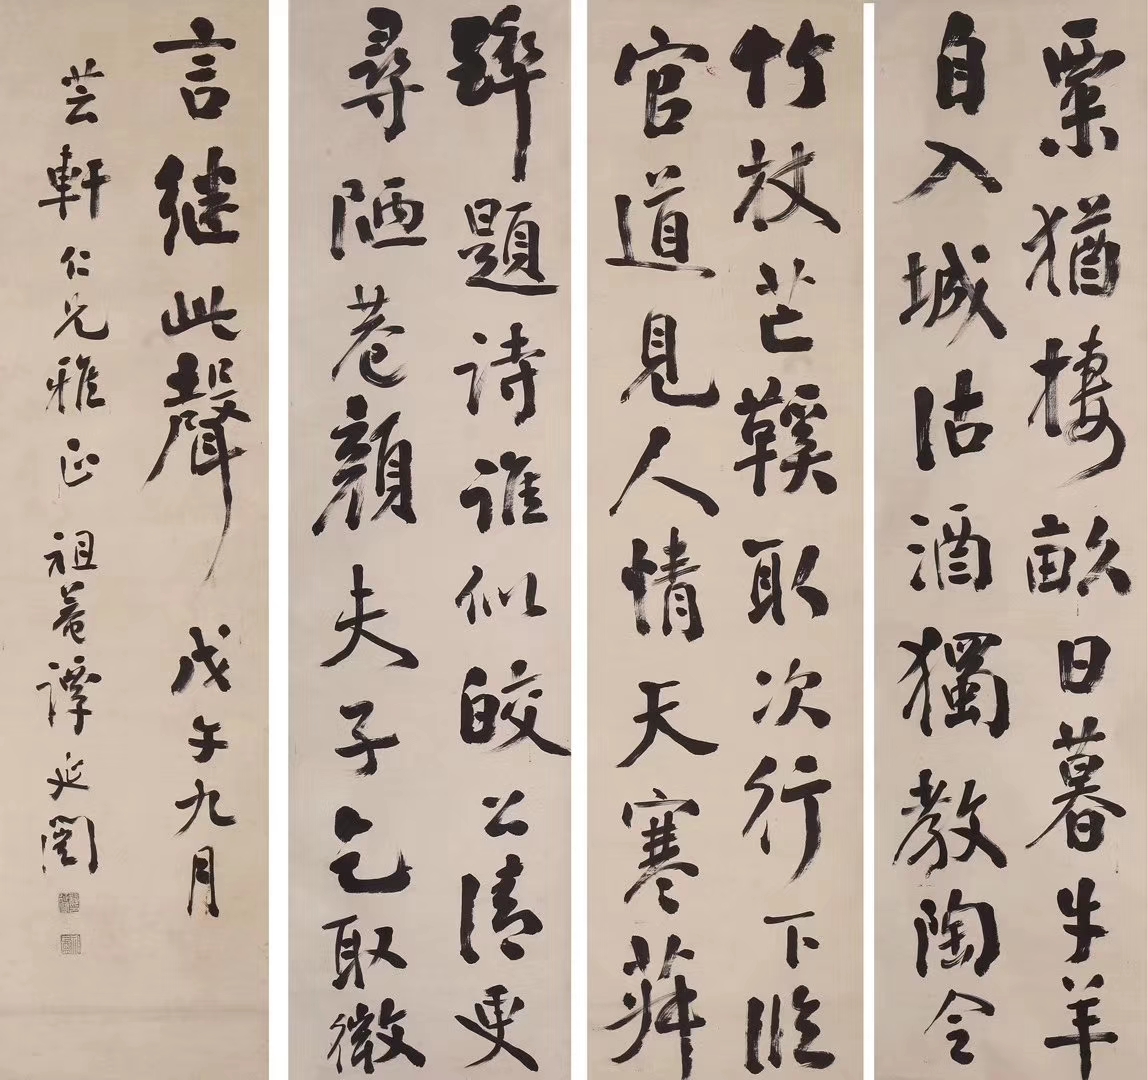 粟猶棲畝日暮牛羊
自入城沽酒獨教陶令
竹杖芒鞵取次行下臨
官道見人情天寒菽
醉題詩誰似皎公清更
尋陋巷顏夫子乞取微
言繼此聲 戊午九月
芸軒仁兄雅正 祖菴譚延闓